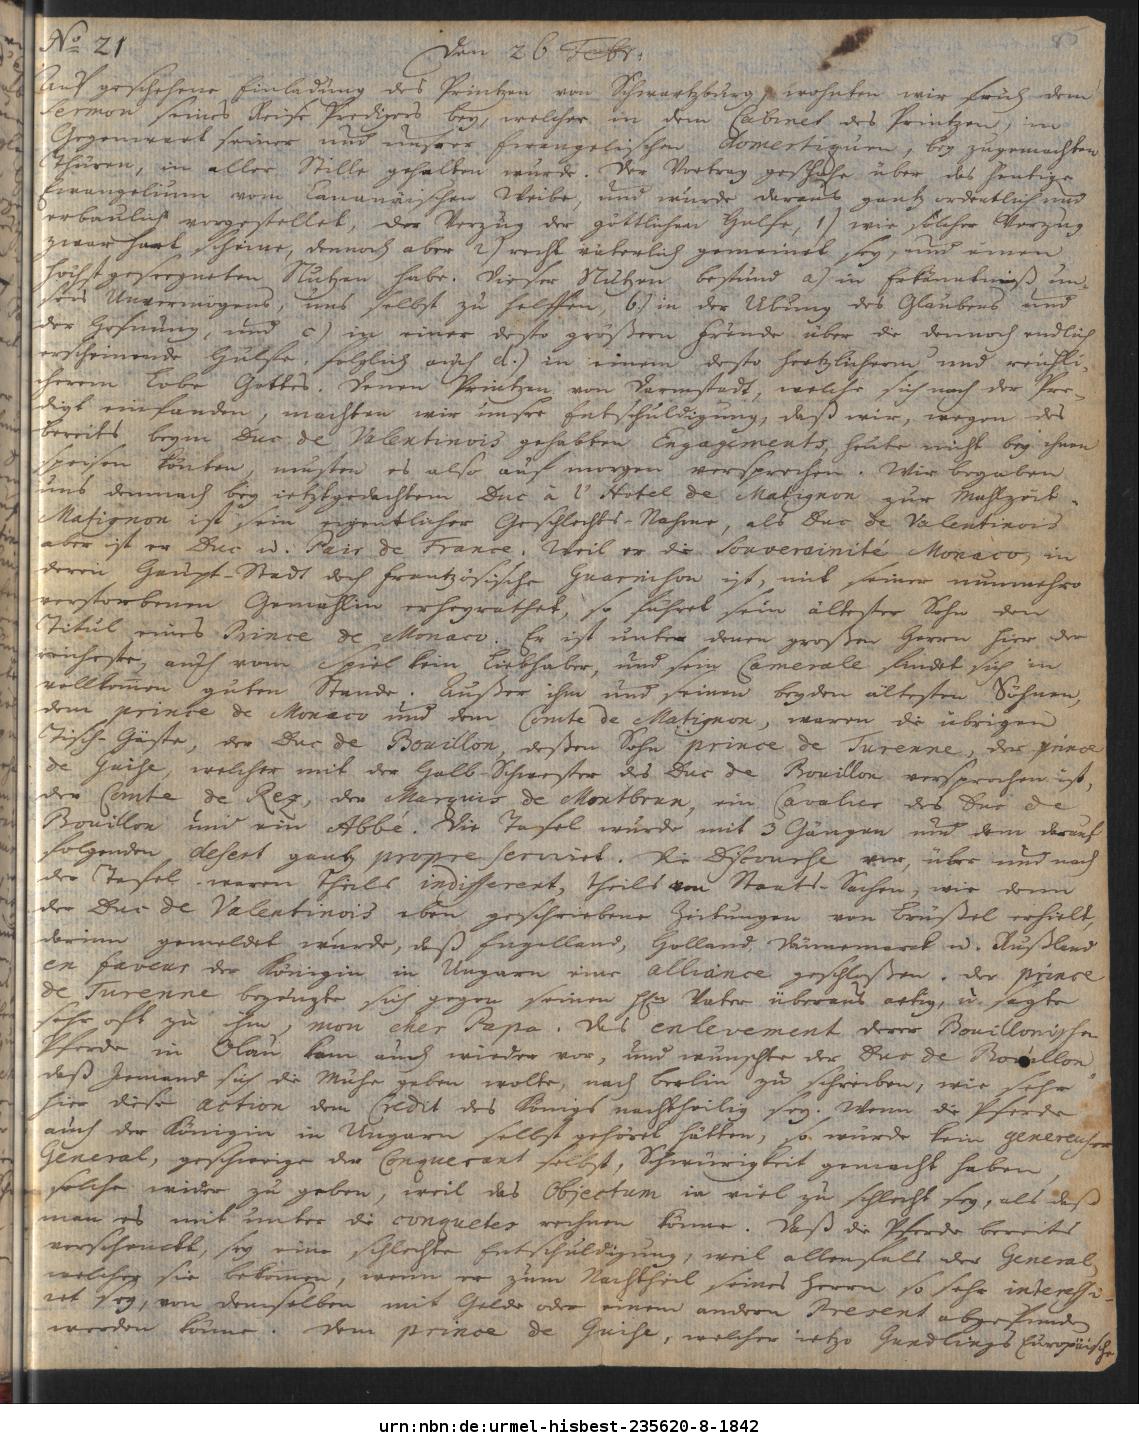 No. 21
Den 26 Febr.
Auf geschehene Einladung des Printzen von Schwartzburg, wohnten wir früh dem
Sermon seines Reise Predigers bey, welcher in dem Cabinet des Printzen, in
Gegenwart seiner und unserer Evangelischen domestiquen, bey zugemachten
Thüren, in aller Stille gehalten wurde. Der Vortrag geschahe über das heutige
Evangelium vom Cananäischen Weibe, und wurde daraus gantz ordentlich und
erbaulich vorgestellet, der Verzug der göttlichen Hülfe, 1) wie solcher Verzug
zwar hart scheine, dennoch aber 2) recht väterlich gemeinet sey, und einen
höchstgeseegneten Nutzen habe. Dieser Nutzen bestund a) in Erkänntniß un-
sers Unvermögens, uns selbst zu helffen, b.) in der Übung des Glaubens und
der Hofnung, und c) in einer desto größern Freude über die dennoch endlich
erscheinende Hülfe, folglich auch d.) in einem desto hertzlichern und reichli-
cherm Lobe Gottes. Denen Printzen von Darmstadt, welche sich nach der Pre-
digt einfanden, machten wir unsre Entschuldigung, daß wir, wegen des
bereits beym Duc de Valentinois gehabten Engagements, heute nicht bey ihnen
speisen könten, musten es also auf morgen versprechen. Wir begaben
uns demnach bey ietztgedachtem Duc à l'Hotel de Matignon zur Mahlzeit.
Matignon ist sein eigentlicher Geschlechts-Nahme, als Duc de Valentinois
aber ist er Duc u. Pair de France. Weil er die Souverainité Monaco, in
deren Haupt-Stadt doch frantzösische Guarnison ist, mit seiner nunmehro
verstorbenen Gemahlin erheyrathet, so führet sein ältester Sohn den
Titul eines Prince de Monaco. Er ist unter denen großen Herrn hier der
reicheste, auch vom Spiel kein Liebhaber, und sein Camerale findet sich in
vollkommen guten Stande. Außer ihm und seinen beyden ältesten Söhnen,
dem prince de Monaco und dem Comte de Matignon, waren die übrigen
Tisch-Gäste, der Duc de Bouillon, deßen Sohn prince de Turenne, der prince
de Guise, welcher mit der Halb-Schwester des Duc de Bouillon versprochen ist,
der Comte de Rex, der Marquis de Montbrun, ein Cavalier des Duc de
Bouillon und ein Abbé. Die Tafel wurde mit 3 Gängen und dem darauf
folgenden desert gantz propre serviret. Die Discourse vor, über und nach
der Tafel waren theils indifferent, theils von Staats-Sachen, wie denn
der Duc de Valentinois eben geschriebene Zeitungen von Brüßel erhielt,
darinn gemeldet wurde, daß Engelland, Holland, Dännemarck u. Rußland
en faveur der Königin in Ungarn eine alliance geschloßen. Der prince
de Turenne bezeugte sich gegen seinen Hln Vater überaus artig, u. sagte
sehr oft zu ihm, mon cher Papa. Das enlevement derer Bouillonischen
Pferde in Olau kam auch wieder vor, und wünschte der Duc de Bouillon,
daß jemand sich die Mühe geben wolte, nach Berlin zu schreiben, wie sehr
hier diese action dem Credit des Königs nachtheilig sey. Wenn die Pferde
auch der Königin in Ungarn selbst gehöret hätten, so würde kein genereuser
General, geschweige der Conquerant selbst, Schwürigkeit gemacht haben,
solche wider zu geben, weil das Objectum ia viel zu schlecht sey, als daß
man es mit unter die conquetes rechnen könne. Daß die Pferde bereits
verschenckt, sey eine schlechte Entschuldigung, weil allenfals der General,
welcher sie bekommen, wenn er zum Nachtheil seines Herrn so sehr interessi-
ret sey, von demselben mit Gelde oder einem andern Present abgefunden
werden könne. Dem prince de Guise, welcher ietzo Gundlings Europäische
urn:nbn:de:urmel-hisbest-235620-8-1842